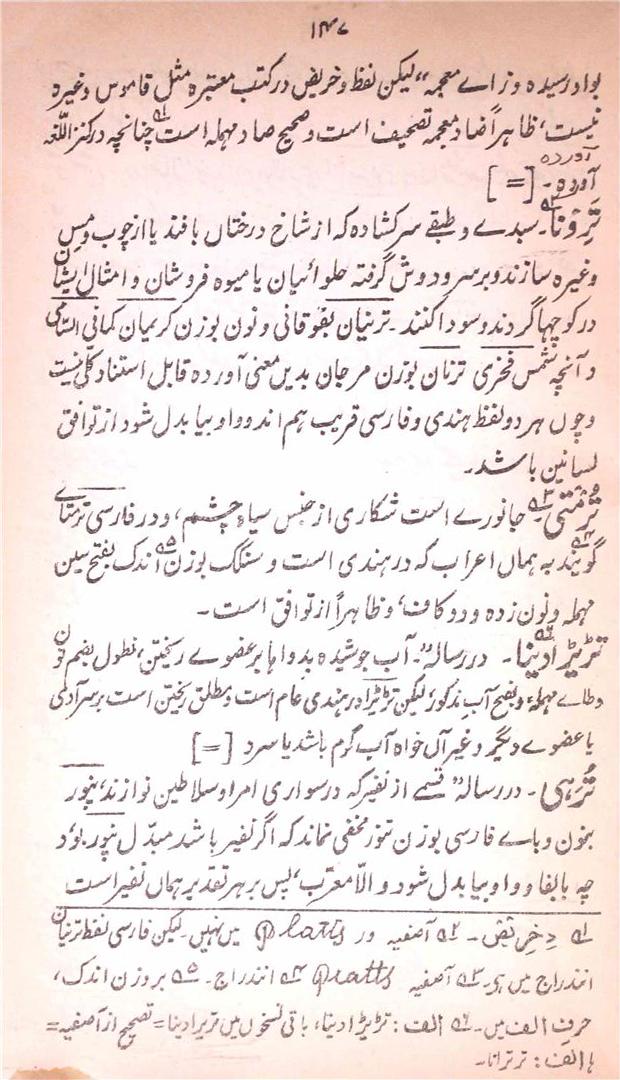 ۱۴۷
بواو رسیده و زاے معجمہ“ لیکن لفظ و خریض در کتب معتبرہ مثل قاموس وغیرہ
نیست، ظاہراً ضاد معجمہ تصحیف است و صحیح صاد مہملہ است چنانچہ در کنز اللغہ
آوردہ
آوردہ۔ [=]
تَرِوَنا۔ سبدے و طبقے سر کشادہ کہ از شاخ درختاں بافند یا از چوب و مس
وغیرہ سازند و بر سر و دوش گرفتہ حلوائیان یا میوہ فروشان و امثال ایشان
در کوچہا گردند و سودا کنند۔ ترنیان بفوقانی و نون بوزن کریمان کمافی السامی
و آنچہ شمس فخری ترنان بوزن مرجان بدیں معنی آوردہ قابل استناد کلی نیست
و چوں ہر دو لفظ ہندی و فارسی قریب ہم اند و واو بیا بدل شود از توافق
لسانین باشد۔
تُرمُتی۔ جانورے است شکاری از جنس سیاہ چشم، و در فارسی ترمتاے
گویند بہ ہماں اعراب کہ در ہندی است و سنگک بوزن اندک بفتح سین
مہملہ و نون زدہ و دو کاف، و ظاہراً از توافق است۔
تڑیڑا دینا۔ در رسالہ ”۔ آب جوشیدہ بدواہا بر عضوے ریختن، نطول بضم نون
و طاے مہملہ و بفتح آب مذکور، لیکن تڑیڑا در ہندی عام است و مطلق ریختن است بر سر آدمی
یا عضوے دیگر و غیر آں خواہ آب گرم باشد یا سرد [=]
تُرَہی۔ در رسالہ ” قسمے از نفیر کہ در سواری امرا و سلاطین نوازند، نپور
بنون و باے فارسی بوزن تنور مخفی نماند کہ اگر نفیر باشد مبدّل نپور بود
چہ با بفا و واو بیا بدل شود و الّا معرّب، پس بر ہر تقدیر ہماں نفیر است
۱ دِخرِیض۔ ۲ آصفیہ ور Platts میں نہیں۔ لیکن فارسی لفظ ترنیان
انندراج میں ہی۔ ۳ آصفیہ Pratts ۴ انندراج۔ ۵ بروزن اندک،
حرف الف میں۔ ۶ الف : تڑیڑا دینا، باقی نسخوں میں تریرا دینا = تصحیح از آصفیہ =
ہا الف : ترترانا۔